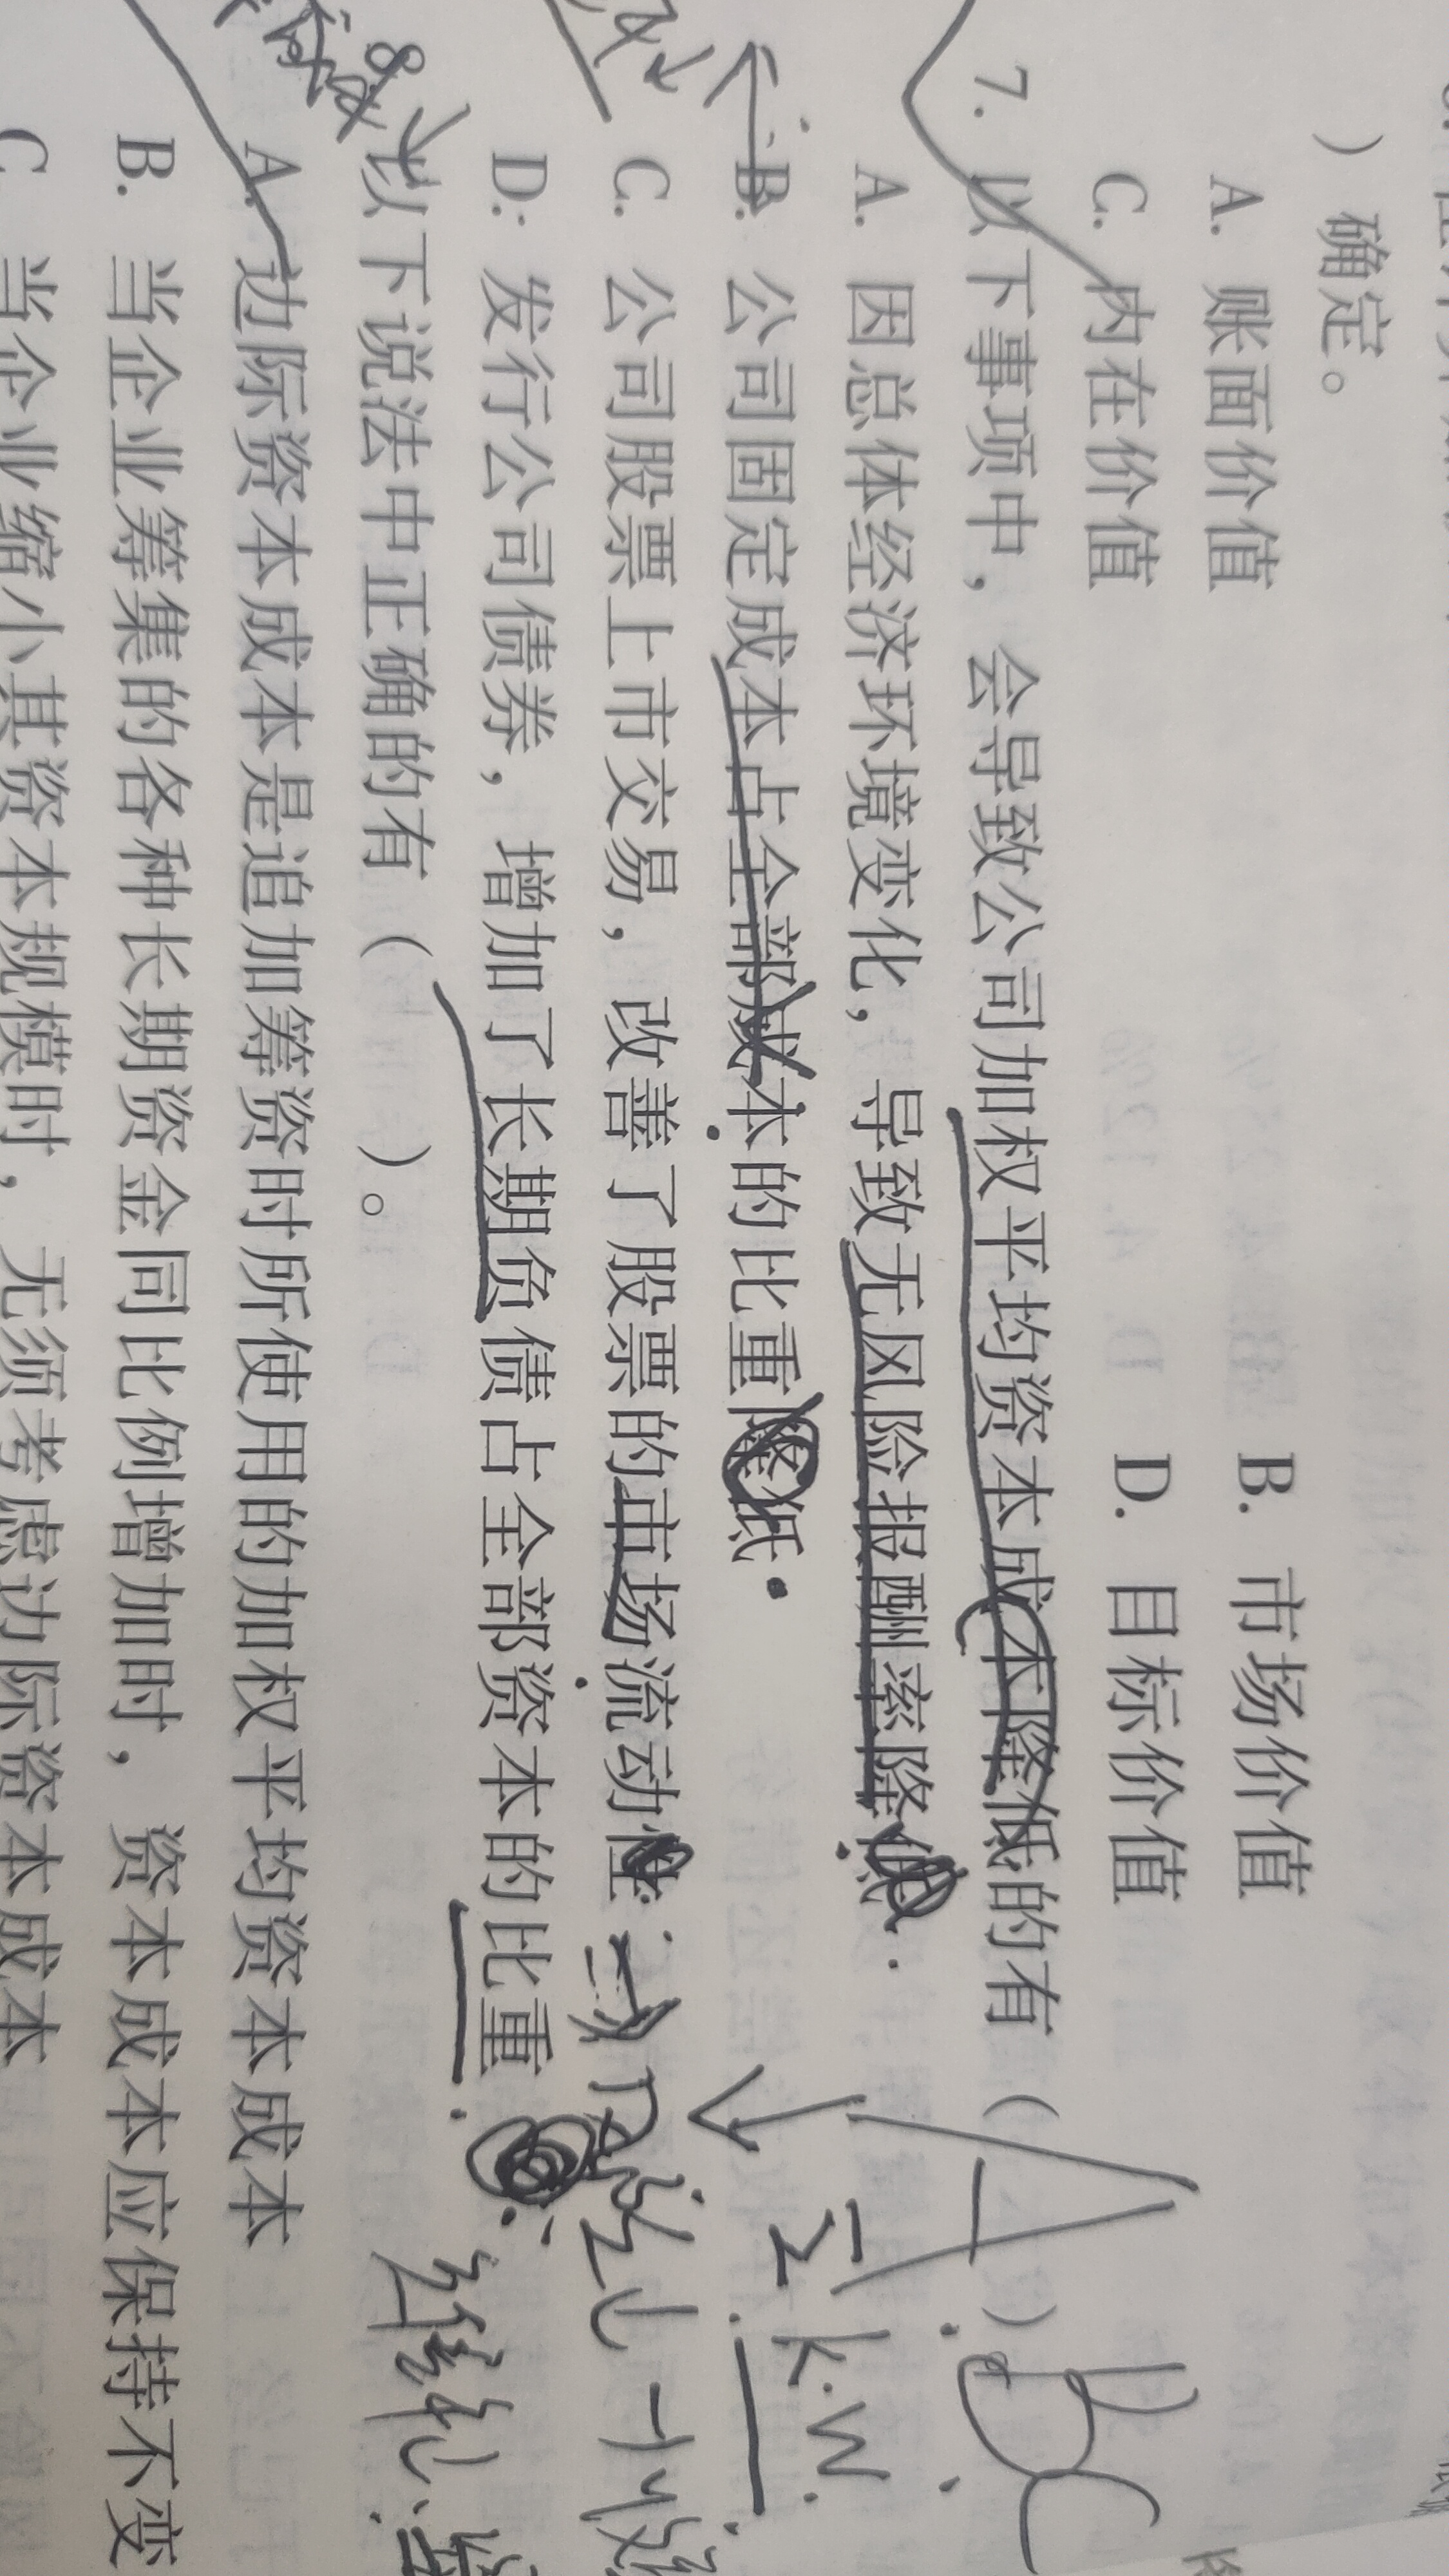 ）确定。
A. 账面价值 B. 市场价值
C. 内在价值 D. 目标价值
7. 以下事项中，会导致公司加权平均资本成本降低的有（ ABC ）
A. 因总体经济环境变化，导致无风险报酬率降低
B. 公司固定成本占全部成本的比重降低
C. 公司股票上市交易，改善了股票的市场流动性
D. 发行公司债券，增加了长期负债占全部资本的比重
Σk·W
8. 以下说法中正确的有（ ）。
A. 边际资本成本是追加筹资时所使用的加权平均资本成本
B. 当企业筹集的各种长期资金同比例增加时，资本成本应保持不变
C 当企业缩小其资本规模时，无须考虑边际资本成本